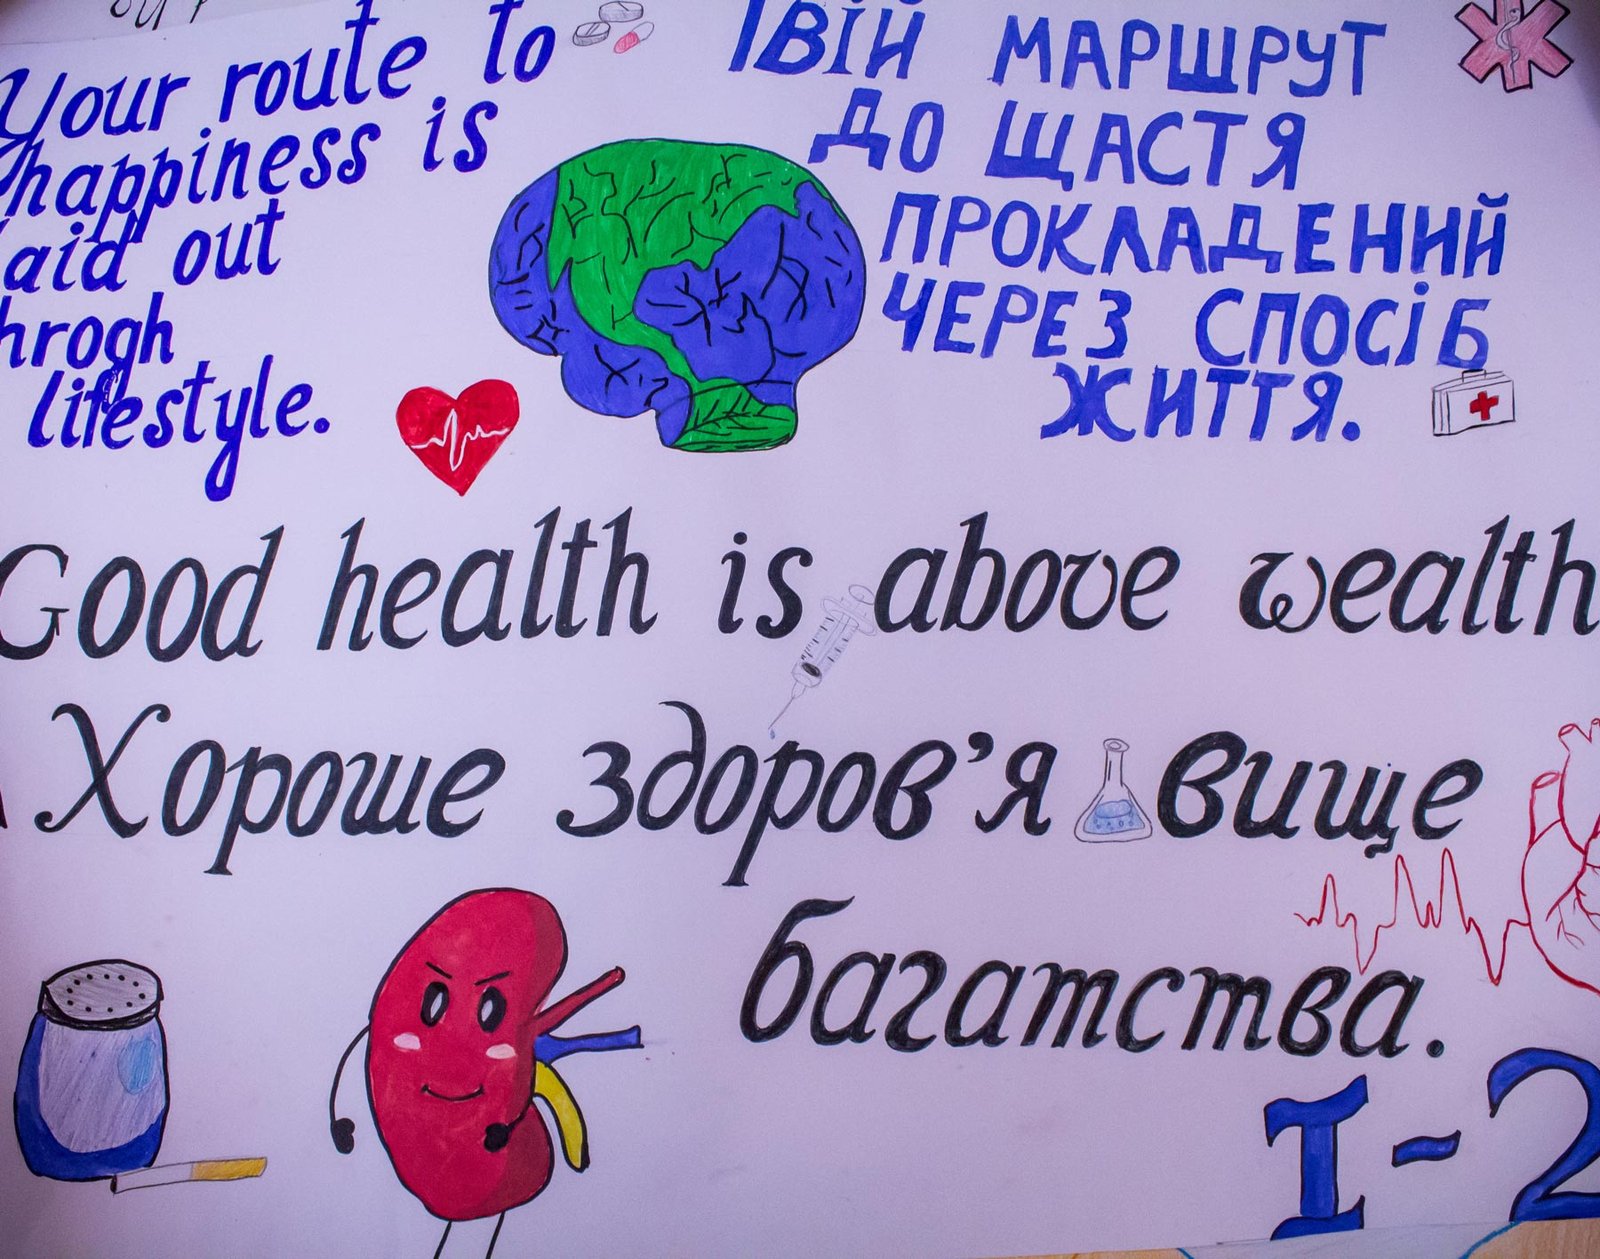 Your route to
happiness is
laid out
hrogh
lifestyle.
ТВІЙ МАРШРУТ
ДО ЩАСТЯ
ПРОКЛАДЕНИЙ
ЧЕРЕЗ СПОСІБ
ЖИТТЯ.
Good health is above wealth
Хороше здоров’я вище
багатства.
I-2